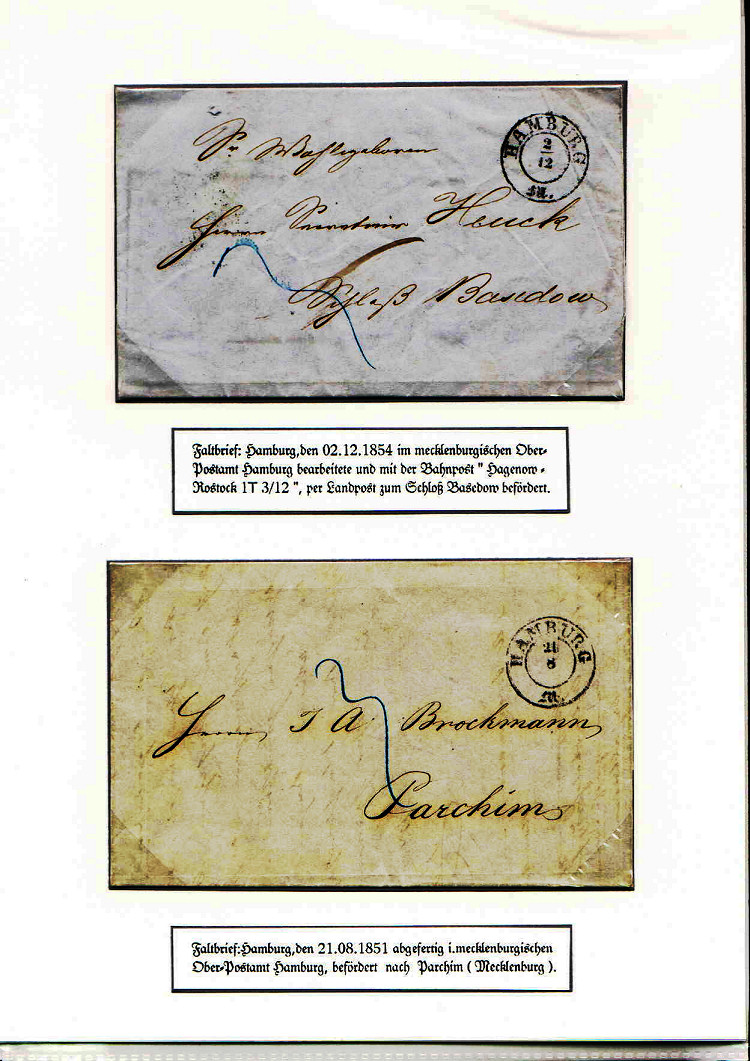 HAMBURG
2
12
M.
Sr Wohlgeboren
Herrn Secretair Heuck
Schloß Basedow
Faltbrief: Hamburg,den 02.12.1854 im mecklenburgischen Ober-
Postamt Hamburg bearbeitete und mit der Bahnpost " Hagenow -
Rostock 1T 3/12 ", per Landpost zum Schloß Basedow befördert.
HAMBURG
21
8
M.
Herrn J A Brockmann
Parchim
Faltbrief:Hamburg,den 21.08.1851 abgefertig i.mecklenburgischen
Ober-Postamt Hamburg, befördert nach Parchim ( Mecklenburg ).